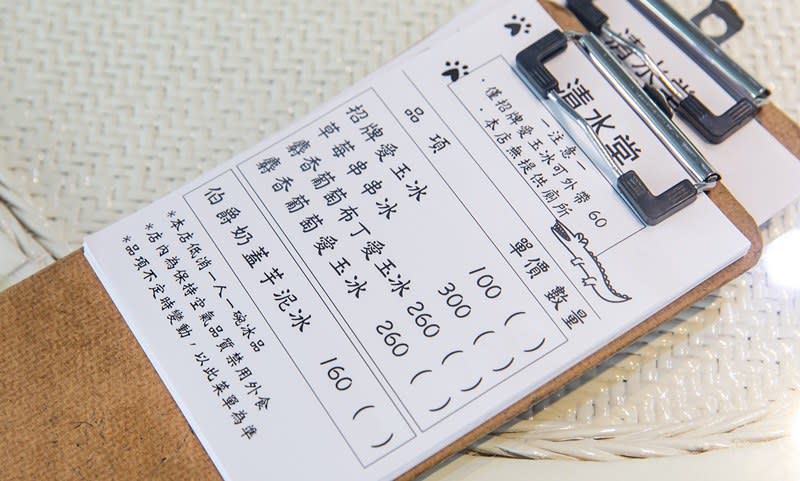 清水堂
清水堂
—注意—
·僅招牌愛玉冰可外帶 60
·本店無提供廁所
品項 單價 數量
招牌愛玉冰 100 ( )
草莓串串冰 300 ( )
麝香葡萄布丁愛玉冰 260 ( )
麝香葡萄愛玉冰 260 ( )
伯爵奶蓋芋泥冰 160 ( )
*本店低消一人一碗冰品
*店內為保持空氣品質禁用外食
*品項不定時變動，以此菜單為準